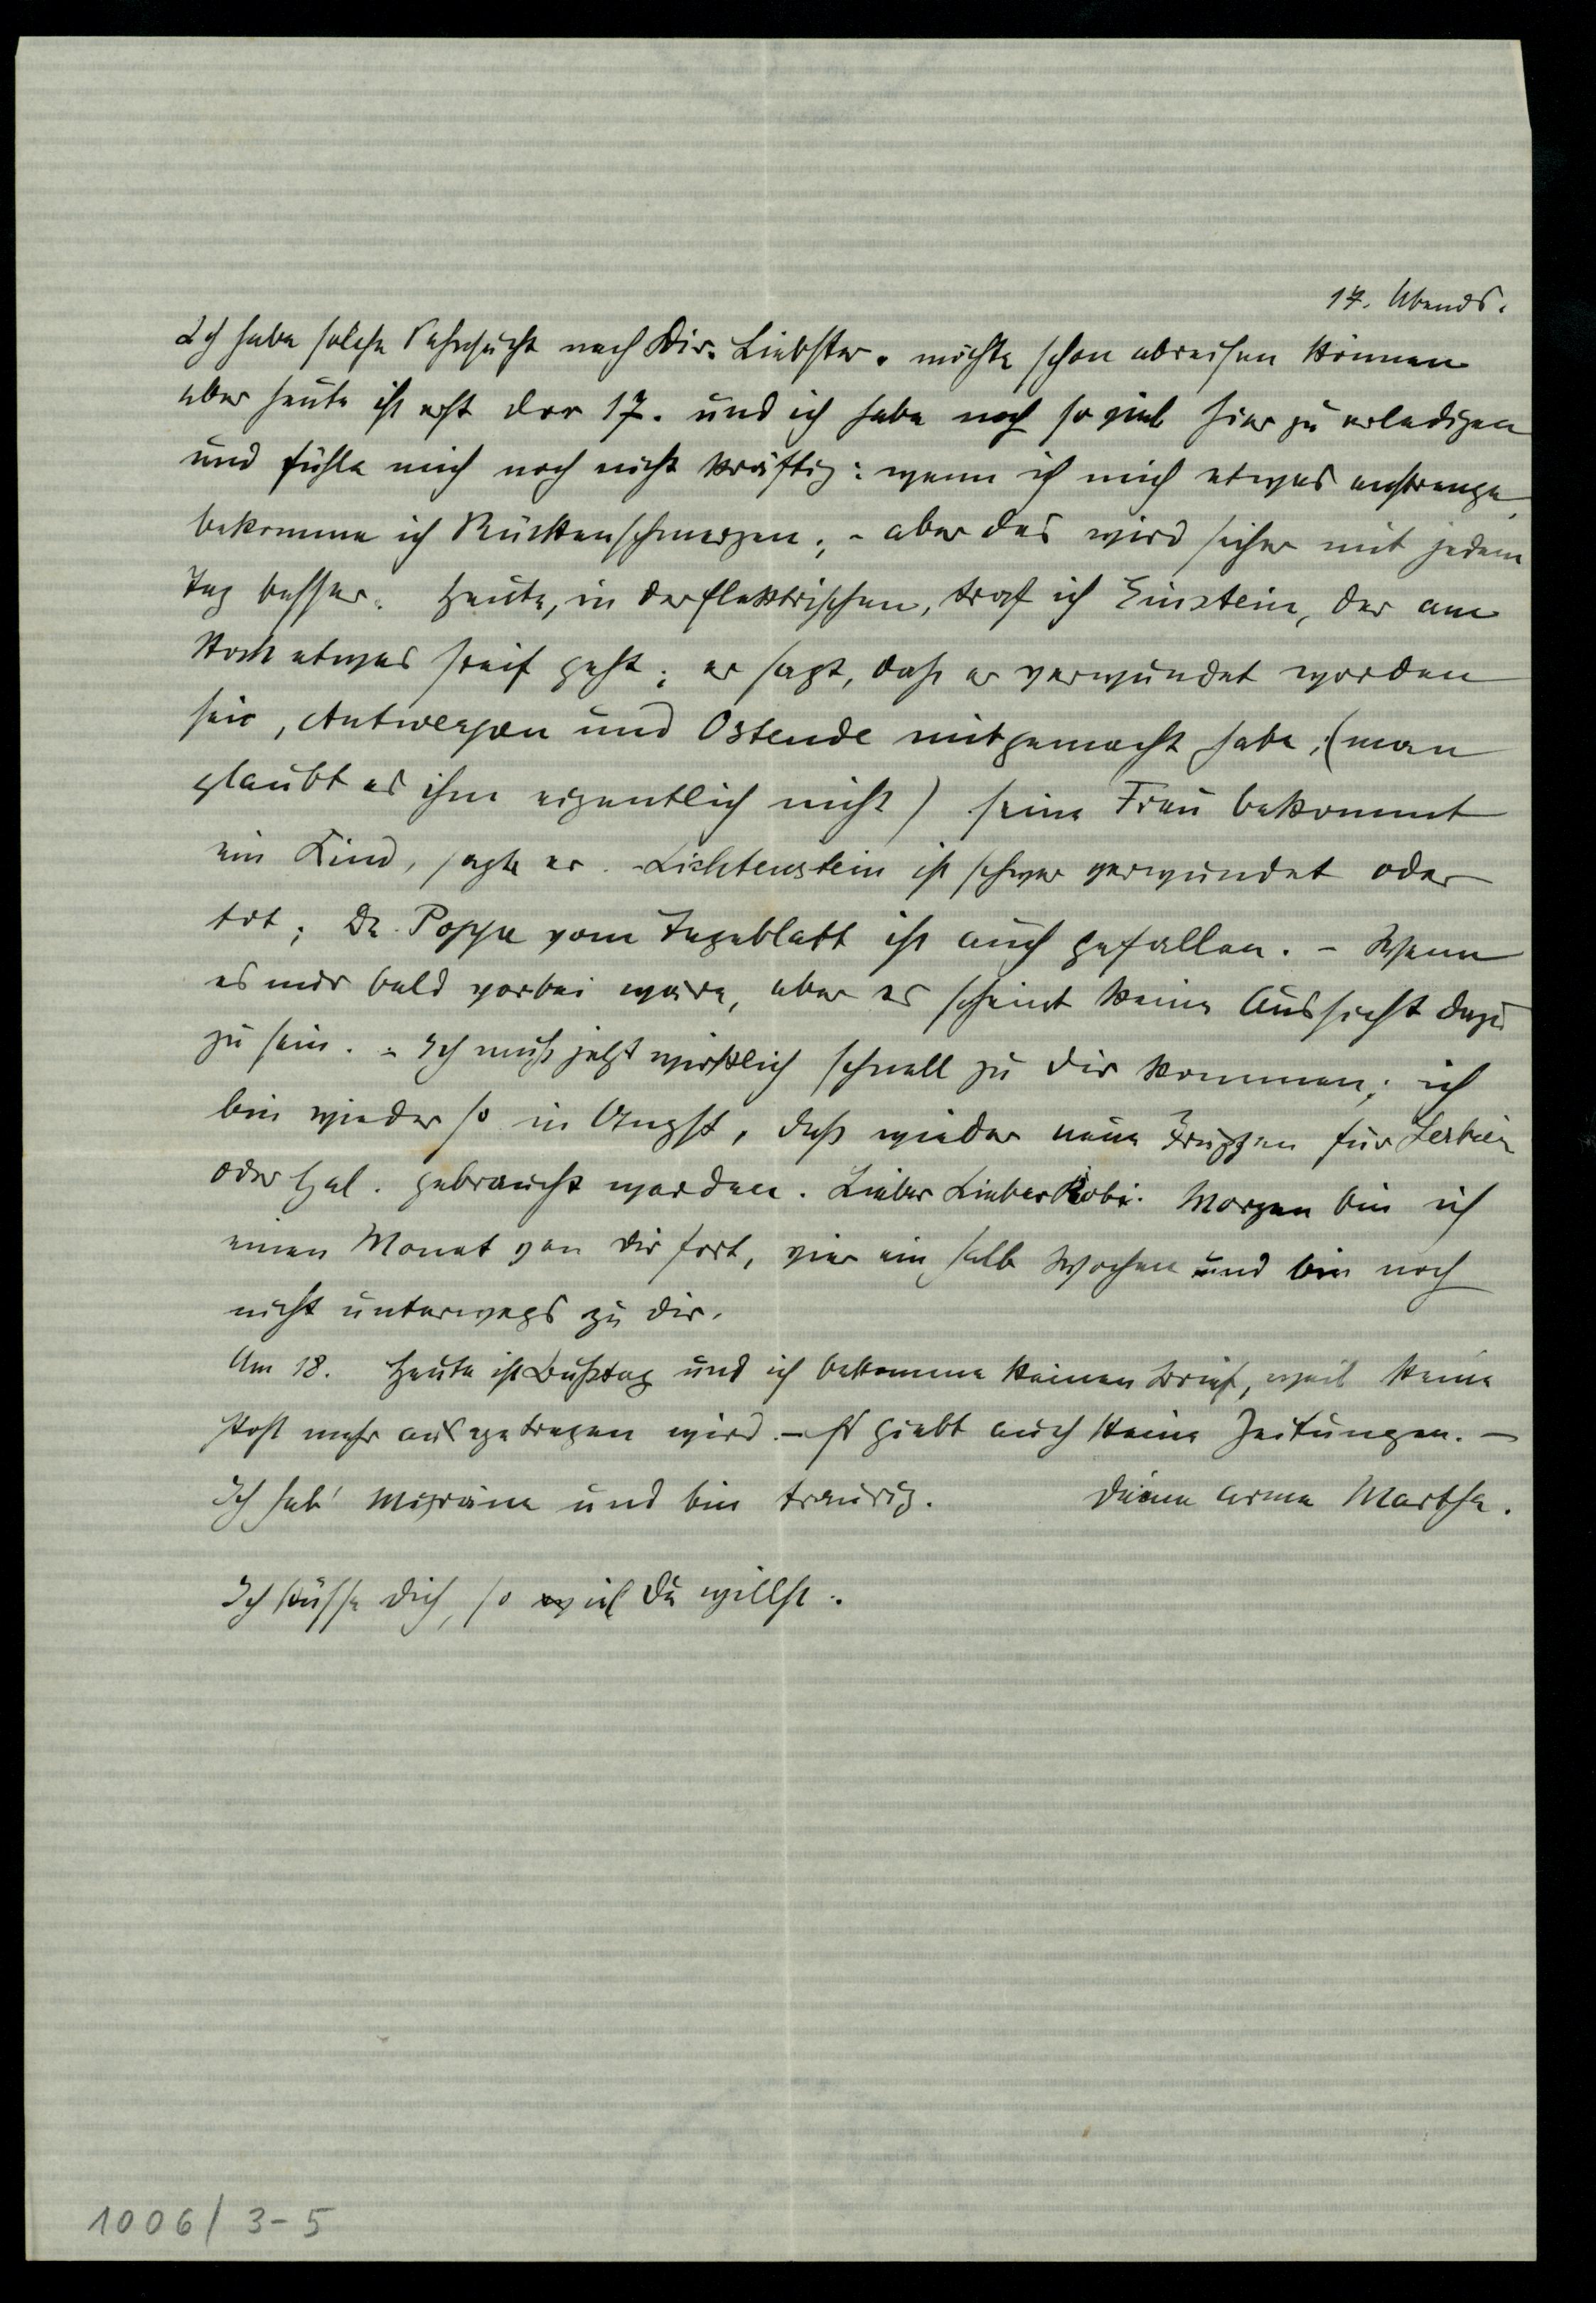 17. Abends.
Ich habe solche Sehnsucht nach Dir. Liebster. möchte schon abreisen können
aber heute ist erst der 17. und ich habe noch so viel hier zu erledigen
und fühle mich noch nicht kräftig: wenn ich mich etwas anstrenge,
bekomme ich Rückenschmerzen; - aber das wird sicher mit jedem
Tag besser. Heute, in der Elektrischen, traf ich Einstein, der am
Stock etwas steif geht; er sagt, dass er verwundet worden
sei, Antwerpen und Ostende mitgemacht habe; (man
glaubt es ihm eigentlich nicht) seine Frau bekommt
ein Kind, sagte er. - Lichtenstein ist schwer verwundet oder
tot; Dr. Poppe vom Tageblatt ist auch gefallen. - Wenn
es nur bald vorbei wäre, aber es scheint keine Aussicht dazu
zu sein. - Ich muß jetzt wirklich schnell zu dir kommen; ich
bin wieder so in Angst, daß wieder neue Truppen für Serbien
oder Gal. gebraucht werden. Lieber Lieber Robi. Morgen bin ich
einen Monat von dir fort, vier ein halb Wochen und bin noch
nicht unterwegs zu dir.
Am 18. Heute ist Bußtag und ich bekomme keinen Brief, weil keine
Post mehr ausgetragen wird. - Es giebt auch keine Zeitungen. -
Ich hab' Migräne und bin traurig. Deine arme Martha.
Ich küsse dich, so viel du willst.
1006/3-5